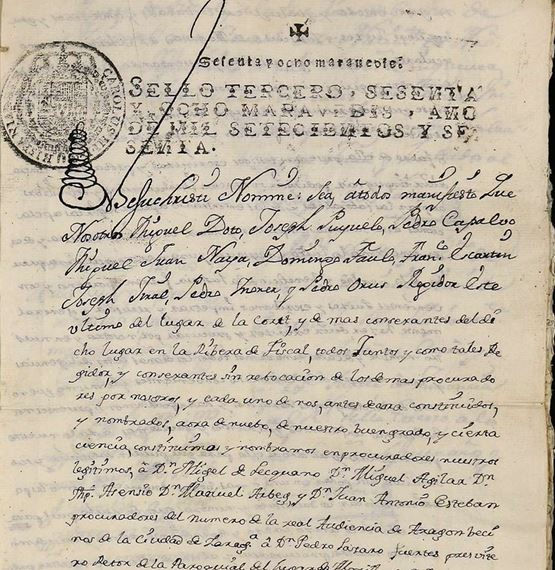 Setenta y ocho maravedis.
SELLO TERCERO, SESENTA
Y OCHO MARAVEDIS, AÑO
DE MIL SETECIENTOS Y SE
SENTA.
CAROLUS III
Nomine: Sea a todos manifiesto Que
Nosotros Miguel Doto, Joseph Puyuelo, Pedro Casalvo
Miguel Juan Naya, Domingo Faulo, Franco Escartin
Joseph Pedro y Pedro Orus Regidor Este
ultimo del lugar de la y de mas conserantes del di
cho lugar en la Ribera de Fiscal, todos Juntos y como tales Re
gidor, y conserantes sin rebocacion de los demas procurado
res por nosotros, y cada uno de nos, antes de aora constituidos,
y nombrados, aora de nuebo, de nuestro buen grado, y cierta
ciencia, constituimos y nombramos en procuradores nuestros
legitimos, à Dn Miguel de Dn Miguel Agilar Dn
Phe Asensio Dn Manuel Arbes, y Dn Juan Antonio Esteban
procuradores del numero de la real Audiencia de Aragon beci
nos de la Ciudad de Zarag.a à Dn Pedro Lazaro fuertes presvite
ro Retor de la Parroquial del